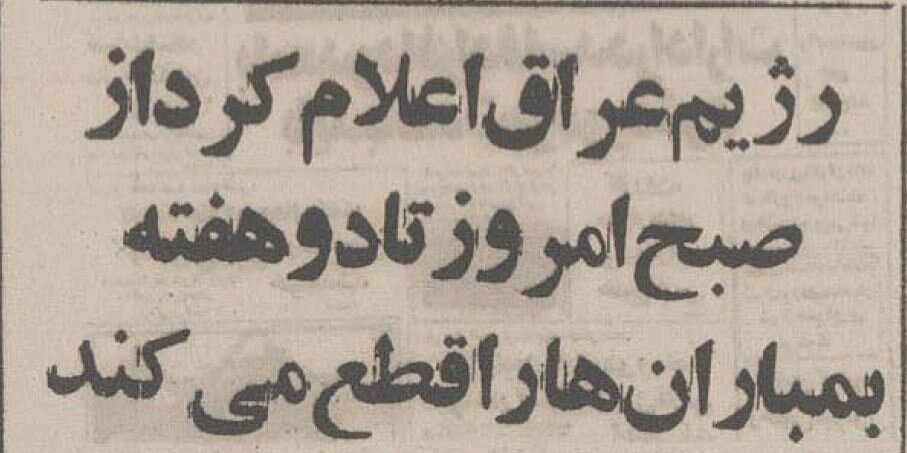 رژیم عراق اعلام کرد از
صبح امروز تا دو هفته
بمباران ها را قطع می کند